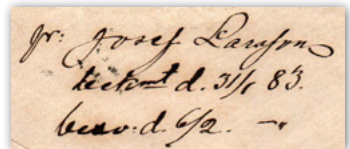 fr: Josef Larsson
bekomt d. 31/1 83.
besv: d. 6/2. —"